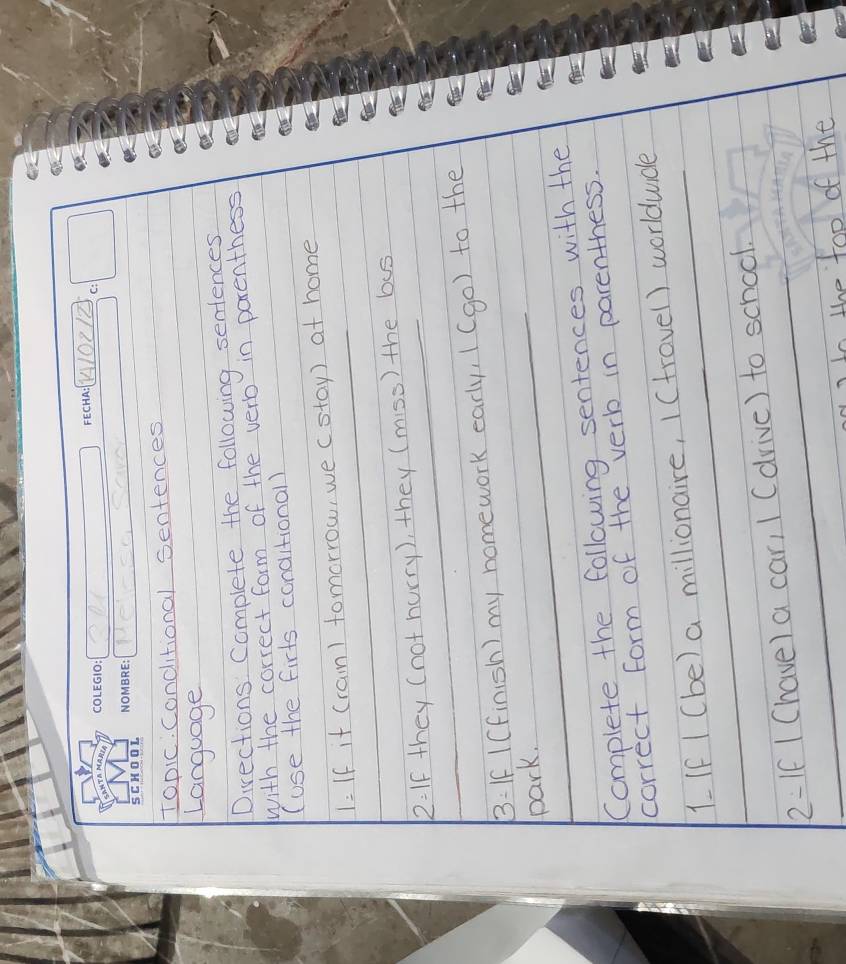 SANTA MARIA
SCHOOL
COLEGIO:
FECHA: 14/02/2
NOMBRE:
C:
Topic: Conditional sentences
Language
Directions: Complete the following sentences
with the correct form of the verb in parenthess
(use the firts conditional)
1= If it (rain) tomorrow, we (stay) at home
2= If they (not hurry), they (miss) the bus
3= If I (finish) my homework early, I (go) to the
park.
Complete the following sentences with the
correct form of the verb in parenthess.
1= If I (be) a millionaire, I (travel) worldwide
2= If I (have) a car, I (drive) to school.
to the top of the